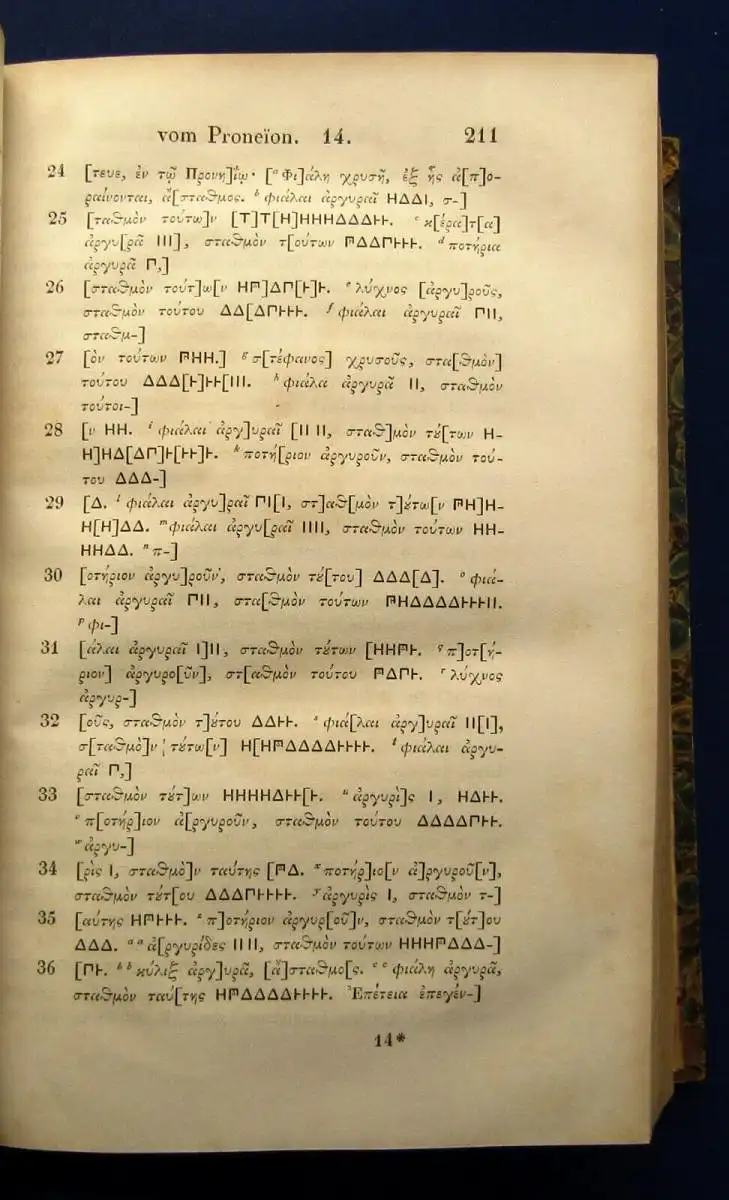 vom Proneïon. 14. 211
24 [τευε, ἐν τῷ Προνη]ΐῳ· [ᵃ Φι]άλη χρυσῆ, ἐξ ἧς ἀ[π]ο-
ραίνονται, ἄ[σταθμος. ᵇ φιάλαι ἀργυραῖ ΗΔΔΙ, σ-]
25 [ταθμὸν τούτω]ν [Τ]Τ[Η]ΗΗΗΔΔΔ𐅂𐅂. ᶜ κ[έρα]τ[α]
ἀργυ[ρᾶ ΙΙΙ], σταθμὸν τ[ούτων 𐅄ΔΔΓ𐅂𐅂𐅂. ᵈ ποτήρια
ἀργυρᾶ Γ,]
26 [σταθμὸν τούτ]ω[ν Η𐅄]ΔΓ[𐅂]𐅂. ᵉ λύχνος [ἀργυ]ροῦς,
σταθμὸν τούτου ΔΔ[ΔΓ𐅂𐅂𐅂. ᶠ φιάλαι ἀργυραῖ ΓΙΙ,
σταθμ-]
27 [ὸν τούτων 𐅅ΗΗ.] ᵍ σ[τέφανος] χρυσοῦς, στα[θμὸν]
τούτου ΔΔΔ[𐅂]𐅂𐅂[ΙΙΙ. ʰ φιάλα ἀργυρᾶ ΙΙ, σταθμὸν
τούτοι-]
28 [ν ΗΗ. ⁱ φιάλαι ἀργ]υραῖ [ΙΙ ΙΙ, σταθ]μὸν τȣ́[των Η-
Η]ΗΔ[ΔΓ]𐅂[𐅂𐅂]𐅂. ᵏ ποτή[ριον ἀργυροῦν, σταθμὸν τού-
του ΔΔΔ-]
29 [Δ. ˡ φιάλαι ἀργυ]ραῖ ΓΙ[Ι, στ]αθ[μὸν τ]ȣ́τω[ν 𐅅Η]Η-
Η[Η]ΔΔ. ᵐ φιάλαι ἀργυ[ραῖ ΙΙΙΙ, σταθμὸν τούτων ΗΗ-
ΗΗΔΔ. ⁿ π-]
30 [οτήριον ἀργυ]ροῦν, σταθμὸν τȣ́[του] ΔΔΔ[Δ]. ᵒ φιά-
λαι ἀργυραῖ ΓΙΙ, στα[θμὸν τούτων 𐅅ΗΔΔΔΔ𐅂𐅂𐅂ΙΙ.
ᵖ φι-]
31 [άλαι ἀργυραῖ Ι]ΙΙ, σταθμὸν τȣ́των [ΗΗ𐅄𐅂. ᑫ π]οτ[ή-
ριον] ἀργυρο[ῦν], στ[αθμὸν τούτου 𐅄ΔΓ𐅂. ʳ λύχνος
ἀργυρ-]
32 [οῦς, σταθμὸν τ]ȣ́του ΔΔ𐅂𐅂. ˢ φιά[λαι ἀργ]υραῖ ΙΙ[Ι],
σ[ταθμὸ]ν τȣ́τω[ν] Η[Η𐅄ΔΔΔΔ𐅂𐅂𐅂𐅂. ᵗ φιάλαι ἀργυ-
ραῖ Γ,]
33 [σταθμὸν τȣ́τ]ων ΗΗΗΗΔ𐅂𐅂[𐅂. ᵘ ἀργυρὶ]ς Ι, ΗΔ𐅂𐅂.
ᵛ π[οτήρ]ιον ἀ[ργυροῦν, σταθμὸν τούτου ΔΔΔΔΓ𐅂𐅂.
ʷ ἀργυ-]
34 [ρὶς Ι, σταθμὸ]ν ταύτης [𐅄Δ. ˣ ποτήρ]ιο[ν ἀ]ργυροῦ[ν],
σταθμὸν τȣ́τ[ου ΔΔΔΓ𐅂𐅂𐅂𐅂. ʸ ἀργυρὶς Ι, σταθμὸν τ-]
35 [αύτης Η𐅄𐅂𐅂𐅂. ᶻ π]οτήριον ἀργυρ[οῦ]ν, σταθμὸν τ[ȣ́τ]ου
ΔΔΔ. ᵃᵃ ἀ[ργυρίδες ΙΙ ΙΙ, σταθμὸν τούτων ΗΗΗ𐅄ΔΔΔ-]
36 [Γ𐅂. ᵇᵇ κύλιξ ἀργ]υρᾶ, [ἄ]σταθμο[ς. ᶜᶜ φιάλη ἀργυρᾶ,
σταθμὸν ταύ[της Η𐅄ΔΔΔΔ𐅂𐅂𐅂𐅂. Ἐπέτεια ἐπεγέν-]
14*